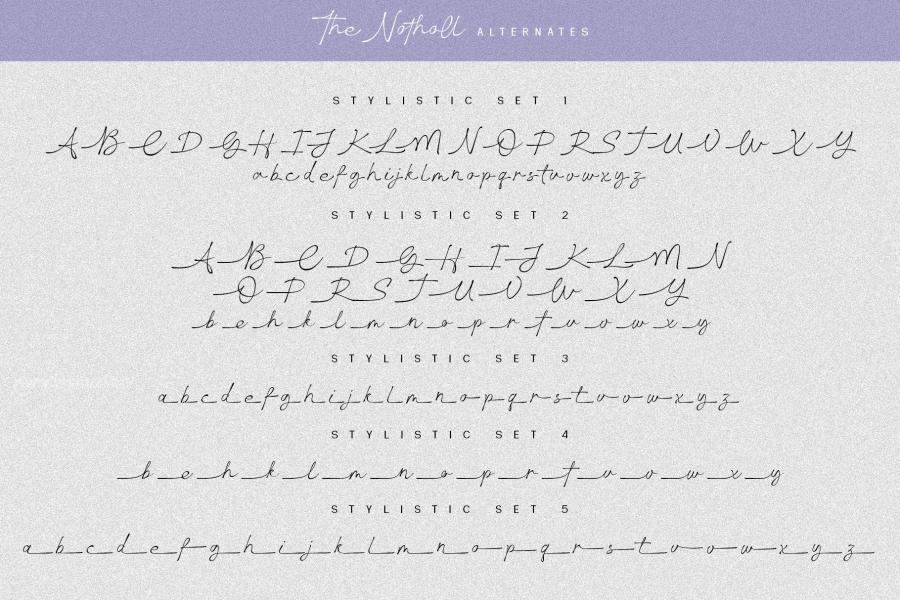 The Notholl ALTERNATES
STYLISTIC SET 1
A B C D G H I J K L M N O P R S T U V W X Y
a b c d e f g h i j k l m n o p q r s t u v w x y z
STYLISTIC SET 2
A B C D G H I J K L M N
O P R S T U V W X Y
b e h k l m n o p r t u v w x y
STYLISTIC SET 3
a b c d e f g h i j k l m n o p q r s t v o w x y z
STYLISTIC SET 4
b e h k l m n o p r t u v w x y
STYLISTIC SET 5
a b c d e f g h i j k l m n o p q r s t v o w x y z